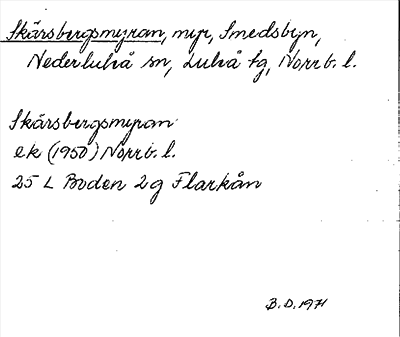 Skärsbergsmyran, myr, Smedsbyn,
Nederluleå sn, Luleå tg, Norrb. l.
Skärsbergsmyran
ek (1950) Norrb. l.
25 L Boden 2g Flarkån
B.D. 1971